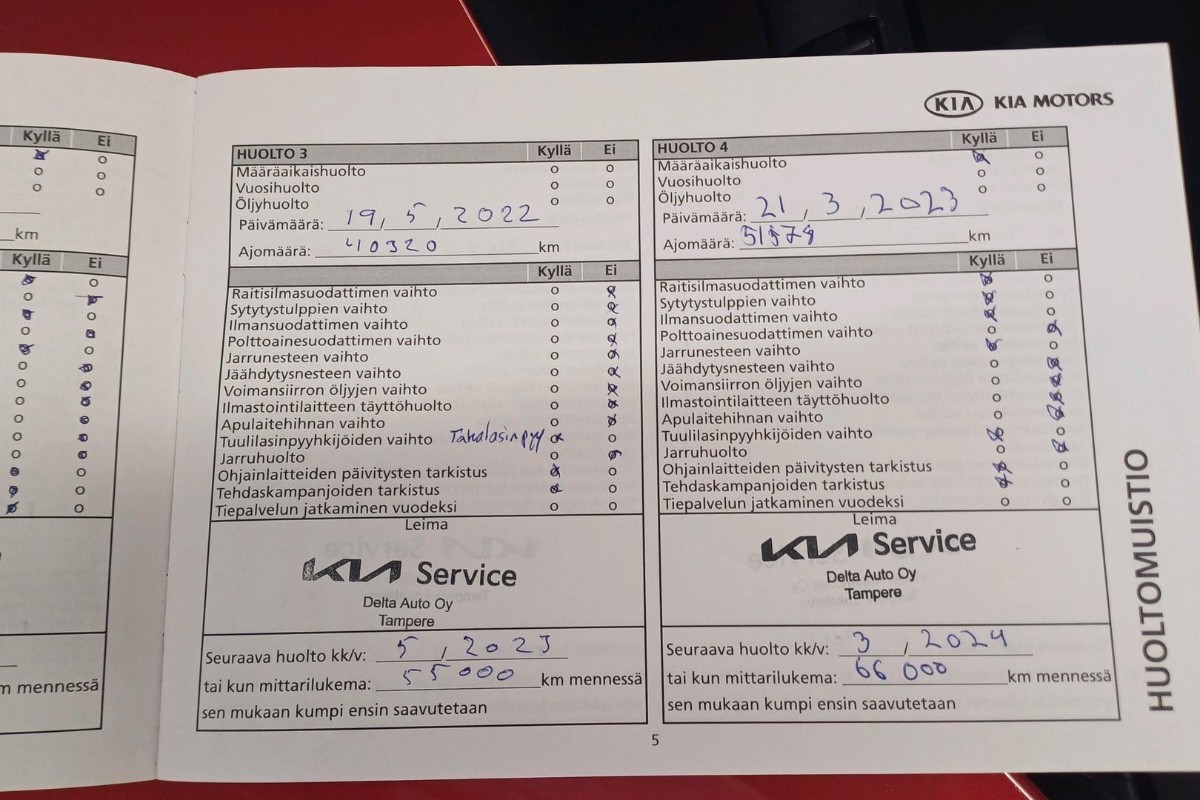 Kyllä Ei
km
Kyllä Ei
km mennessä
KIA KIA MOTORS
HUOLTO 3 Kyllä Ei
Määräaikaishuolto
Vuosihuolto
Öljyhuolto
Päivämäärä: 19, 5, 2022
Ajomäärä: 40320 km
Kyllä Ei
Raitisilmasuodattimen vaihto
Sytytystulppien vaihto
Ilmansuodattimen vaihto
Polttoainesuodattimen vaihto
Jarrunesteen vaihto
Jäähdytysnesteen vaihto
Voimansiirron öljyjen vaihto
Ilmastointilaitteen täyttöhuolto
Apulaitehihnan vaihto
Tuulilasinpyyhkijöiden vaihto Takalasinpyy
Jarruhuolto
Ohjainlaitteiden päivitysten tarkistus
Tehdaskampanjoiden tarkistus
Tiepalvelun jatkaminen vuodeksi
Leima
KIA Service
Delta Auto Oy
Tampere
Seuraava huolto kk/v: 5, 2023
tai kun mittarilukema: 55000 km mennessä
sen mukaan kumpi ensin saavutetaan
HUOLTO 4 Kyllä Ei
Määräaikaishuolto
Vuosihuolto
Öljyhuolto
Päivämäärä: 21, 3, 2023
Ajomäärä: km
Kyllä Ei
Raitisilmasuodattimen vaihto
Sytytystulppien vaihto
Ilmansuodattimen vaihto
Polttoainesuodattimen vaihto
Jarrunesteen vaihto
Jäähdytysnesteen vaihto
Voimansiirron öljyjen vaihto
Ilmastointilaitteen täyttöhuolto
Apulaitehihnan vaihto
Tuulilasinpyyhkijöiden vaihto
Jarruhuolto
Ohjainlaitteiden päivitysten tarkistus
Tehdaskampanjoiden tarkistus
Tiepalvelun jatkaminen vuodeksi
Leima
KIA Service
Delta Auto Oy
Tampere
Seuraava huolto kk/v: 3, 2024
tai kun mittarilukema: 66 000 km mennessä
sen mukaan kumpi ensin saavutetaan
HUOLTOMUISTIO
5